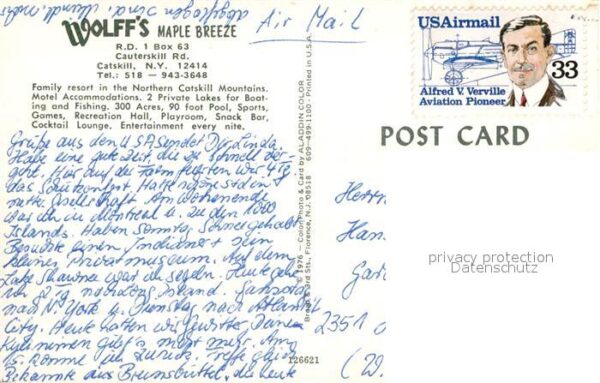 Air Mail
WOLFF'S MAPLE BREEZE
R.D. 1 Box 63
Cauterskill Rd.
Catskill, N.Y. 12414
Tel.: 518 — 943-3648
Family resort in the Northern Catskill Mountains.
Motel Accommodations. 2 Private Lakes for Boat-
ing and Fishing. 300 Acres, 90 foot Pool, Sports,
Games, Recreation Hall, Playroom, Snack Bar,
Cocktail Lounge. Entertainment every nite.
USAirmail
Alfred V. Verville
Aviation Pioneer
33
POST CARD
Grüße aus den USA sendet Dir Linda.
Habe eine gute Zeit, die zu schnell ver-
geht. Hier auf der Farm
das
nette Gesellschaft. Am Wochenende
war ich in Montreal u. zu den 1000
Islands. Haben Sonntag Schnee gehabt.
Besuchte einen Indianer + sein
kleines Privatmuseum. Auf dem
Lake war ich segeln. Heute gehe
ich nach Long Island. Samstag
nach N. York u. Dienstag nach Atlantic
City. Heute hatten wir Gewitter. Danach
gibt's nicht mehr. Am
15. komme ich zurück. Treffe gleich
Bekannte aus Brunsbüttel, die heute
© 1976 — Color Photo & Card by ALADDIN COLOR
Broad & 3rd Sts., Florence, N.J. 08518 609-499-1100 - Printed in U.S.A.
126621
Herrn
Han
Gar
2351
(W.
privacy protection
Datenschutz